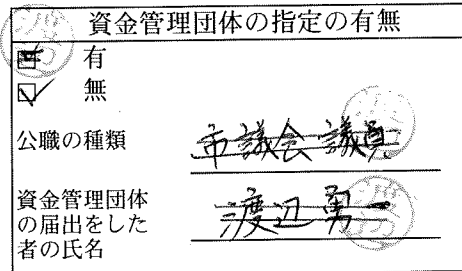 資金管理団体の指定の有無
有
無
公職の種類 市議会議員
資金管理団体
の届出をした 渡辺勇一
者の氏名